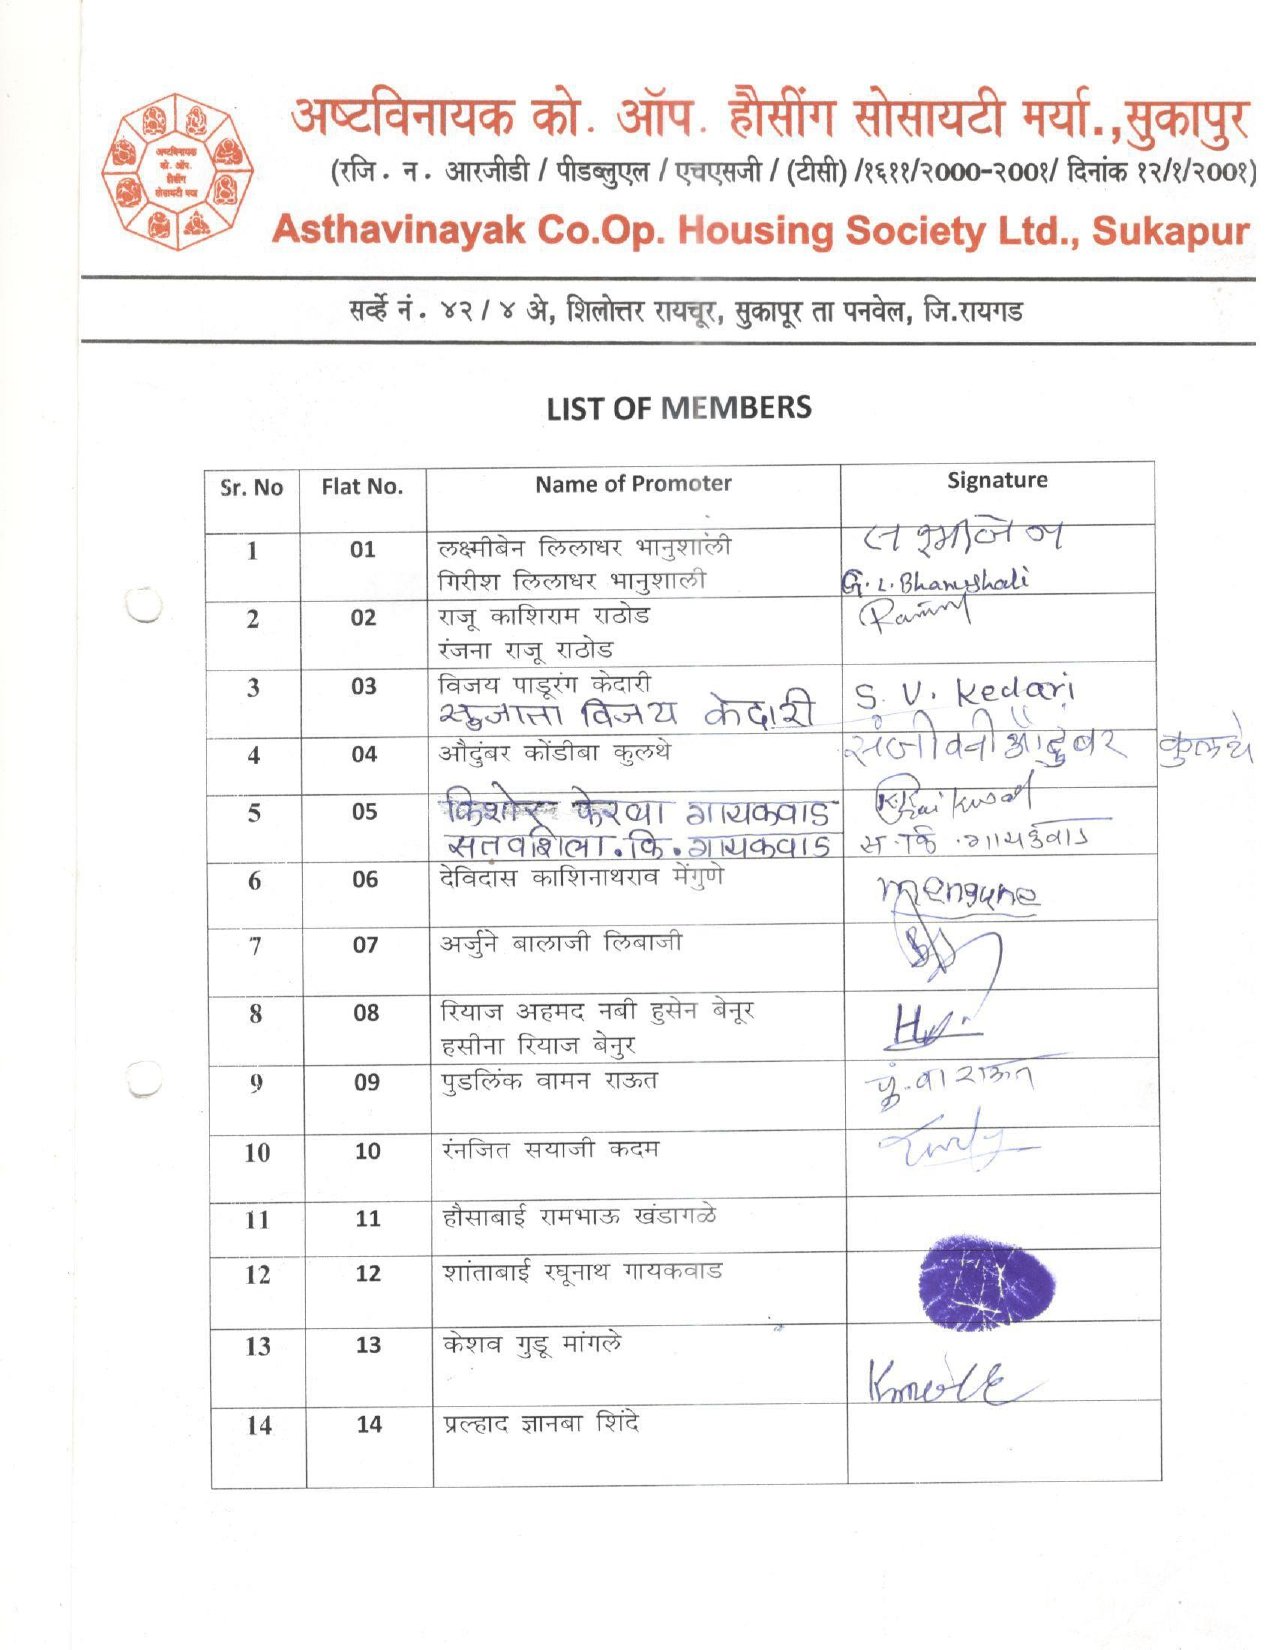 अष्टविनायक को. ऑप. हौसींग सोसायटी मर्या.,सुकापुर
अष्टविनायक
को. ऑप.
हौसींग
सोसायटी मर्या
(रजि . न . आरजीडी / पीडब्लुएल / एचएसजी / (टीसी) /१६११/२०००-२००१/ दिनांक १२/१/२००१)
Asthavinayak Co.Op. Housing Society Ltd., Sukapur
सर्व्हे नं . ४२ / ४ अे, शिलोत्तर रायचूर, सुकापूर ता पनवेल, जि.रायगड
LIST OF MEMBERS
Sr. No Flat No. Name of Promoter Signature
1 01 लक्ष्मीबेन लिलाधर भानुशाली
गिरीश लिलाधर भानुशाली G. L. Bhanushali
2 02 राजू काशिराम राठोड
रंजना राजू राठोड
3 03 विजय पाडूरंग केदारी
सुजाता विजय केदारी S. V. Kedari
4 04 औदुंबर कोंडीबा कुलथे संजीवनी औदुंबर कुलथे
5 05 किशोर केरबा गायकवाड
सतवशिला.कि.गायकवाड स.कि.गायकवाड
6 06 देविदास काशिनाथराव मेंगुणे mengune
7 07 अर्जुने बालाजी लिबाजी
8 08 रियाज अहमद नबी हुसेन बेनूर
हसीना रियाज बेनुर
9 09 पुडलिंक वामन राऊत पुं.वा राऊत
10 10 रंनजित सयाजी कदम
11 11 हौसाबाई रामभाऊ खंडागळे
12 12 शांताबाई रघूनाथ गायकवाड
13 13 केशव गुडू मांगले
14 14 प्रल्हाद ज्ञानबा शिंदे